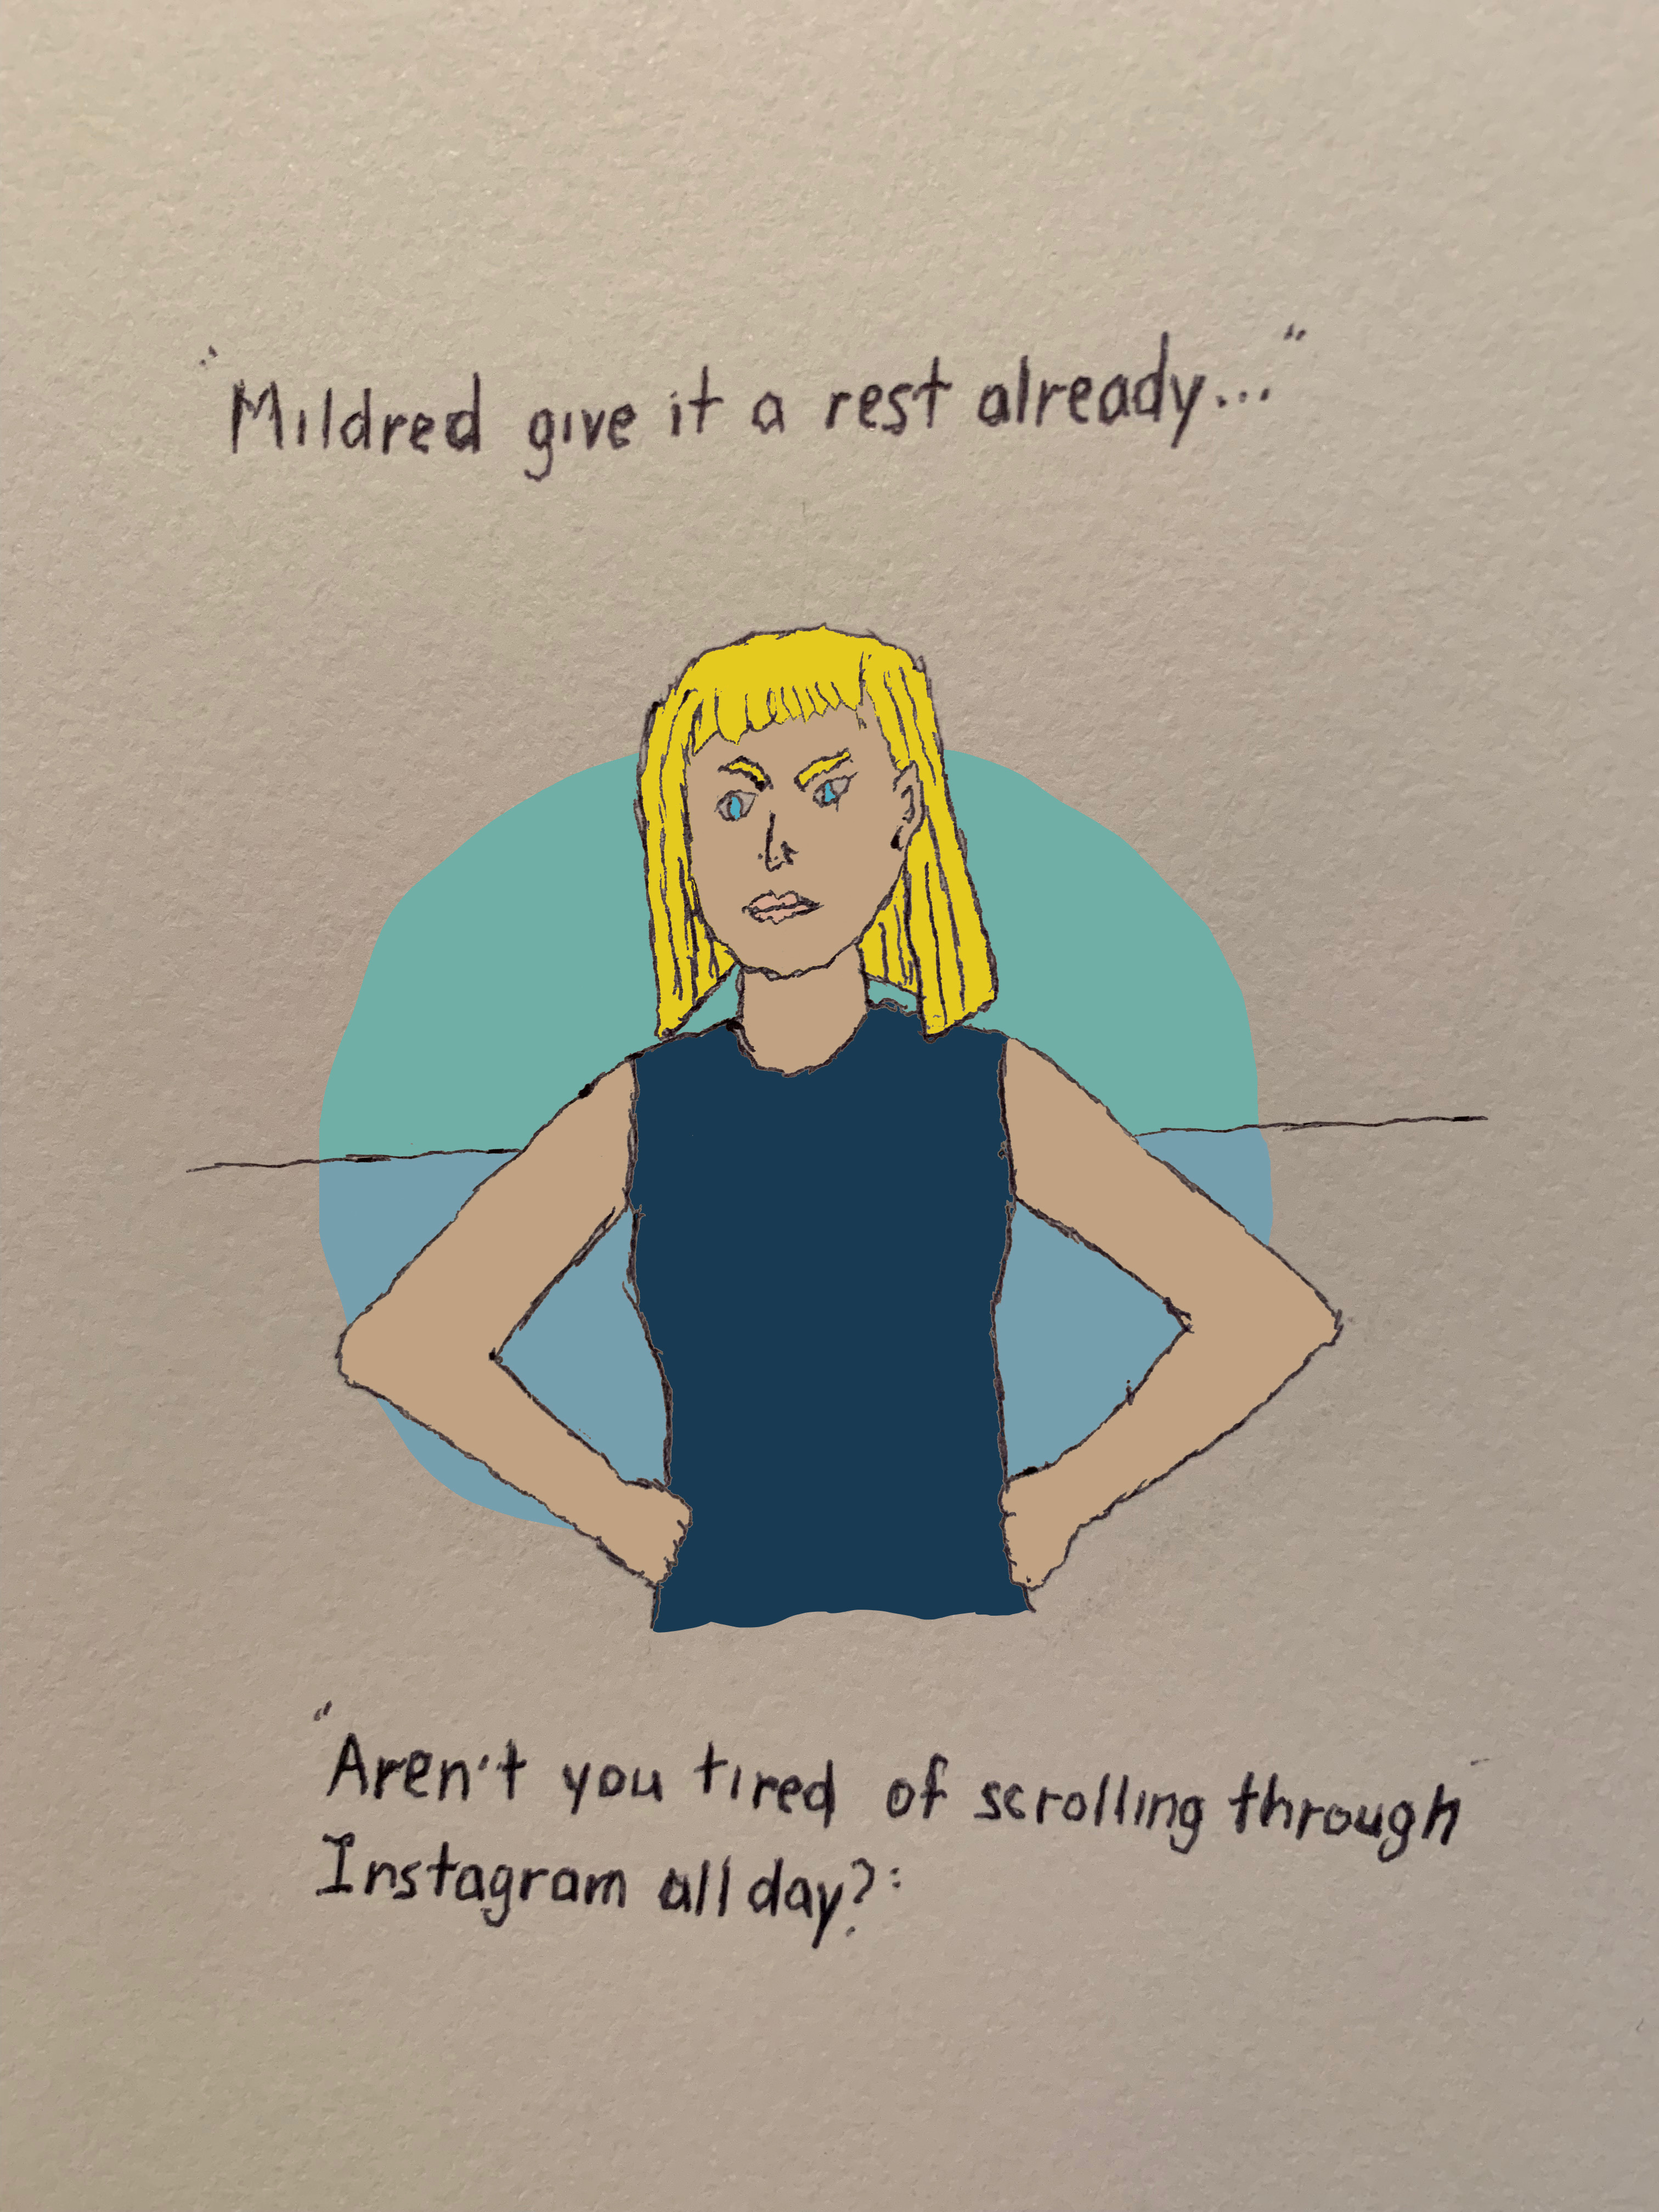 "Mildred give it a rest already..."
"Aren't you tired of scrolling through
Instagram all day?"